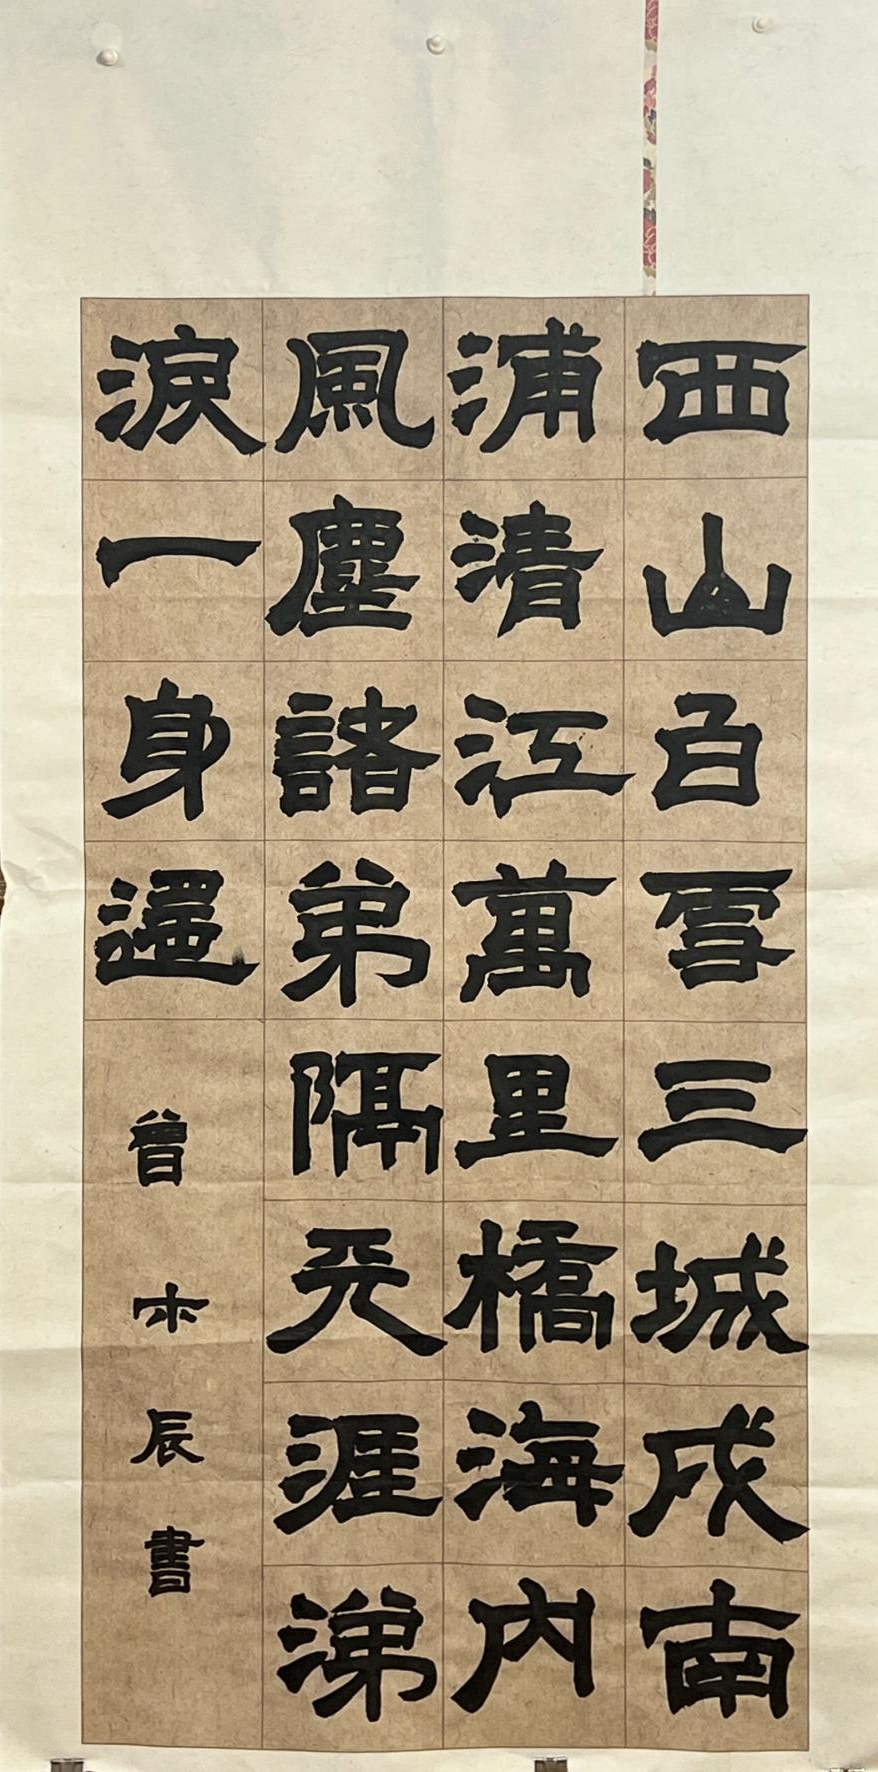 西山白雪三城戍南
浦清江萬里橋海內
風塵諸弟隔天涯涕
淚一身遙
曾 辰書